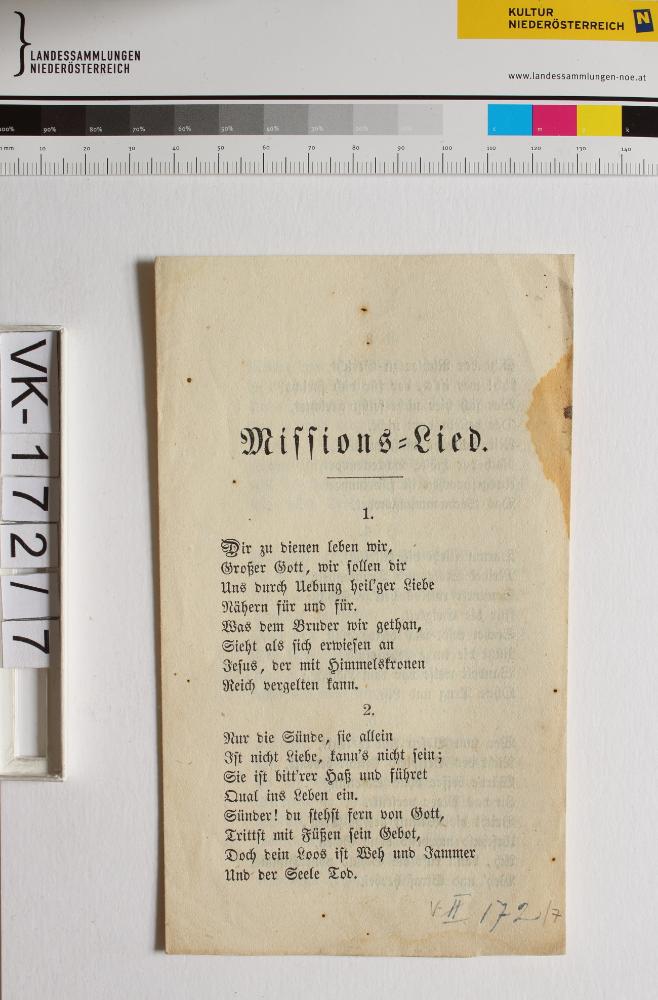 KULTUR
NIEDERÖSTERREICH N
LANDESSAMMLUNGEN
NIEDERÖSTERREICH
www.landessammlungen-noe.at
100% 90% 80% 70% 60% 50% 40% 30% 20% 10% c m y k
mm 10 20 30 40 50 60 70 80 90 100 110 120 130 140
VK-172/7
Missions-Lied.
1.
Dir zu dienen leben wir,
Großer Gott, wir sollen dir
Uns durch Uebung heil'ger Liebe
Nähern für und für.
Was dem Bruder wir gethan,
Sieht als sich erwiesen an
Jesus, der mit Himmelskronen
Reich vergelten kann.
2.
Nur die Sünde, sie allein
Ist nicht Liebe, kann's nicht sein;
Sie ist bitt'rer Haß und führet
Qual ins Leben ein.
Sünder! du stehst fern von Gott,
Trittst mit Füßen sein Gebot,
Doch dein Loos ist Weh und Jammer
Und der Seele Tod.
V II 172/7